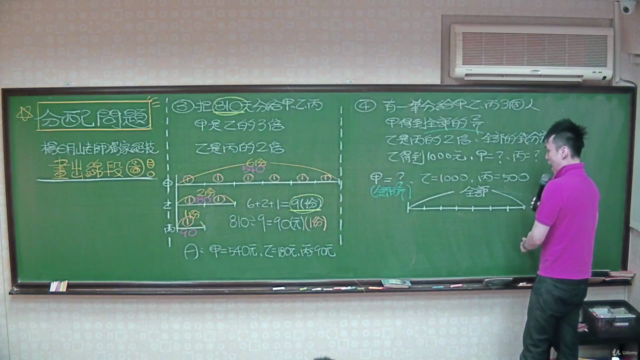 分配問題
畫出線段圖!
③ 把810元分給甲乙丙
甲是乙的3倍
乙是丙的2倍
6份
540
甲 ① ① ① ① ① ①
2份
乙 ① ①
6+2+1=9(份)
1份
丙 ①
90
810÷9=90(元)(1份)
A: 甲=540元、乙=180元、丙=90元
④ 有一筆分給甲乙丙3個人
甲得到全部的
乙是丙的2倍
乙得到1000元,甲=?、丙=?
甲=? 乙=1000、丙=500
全部